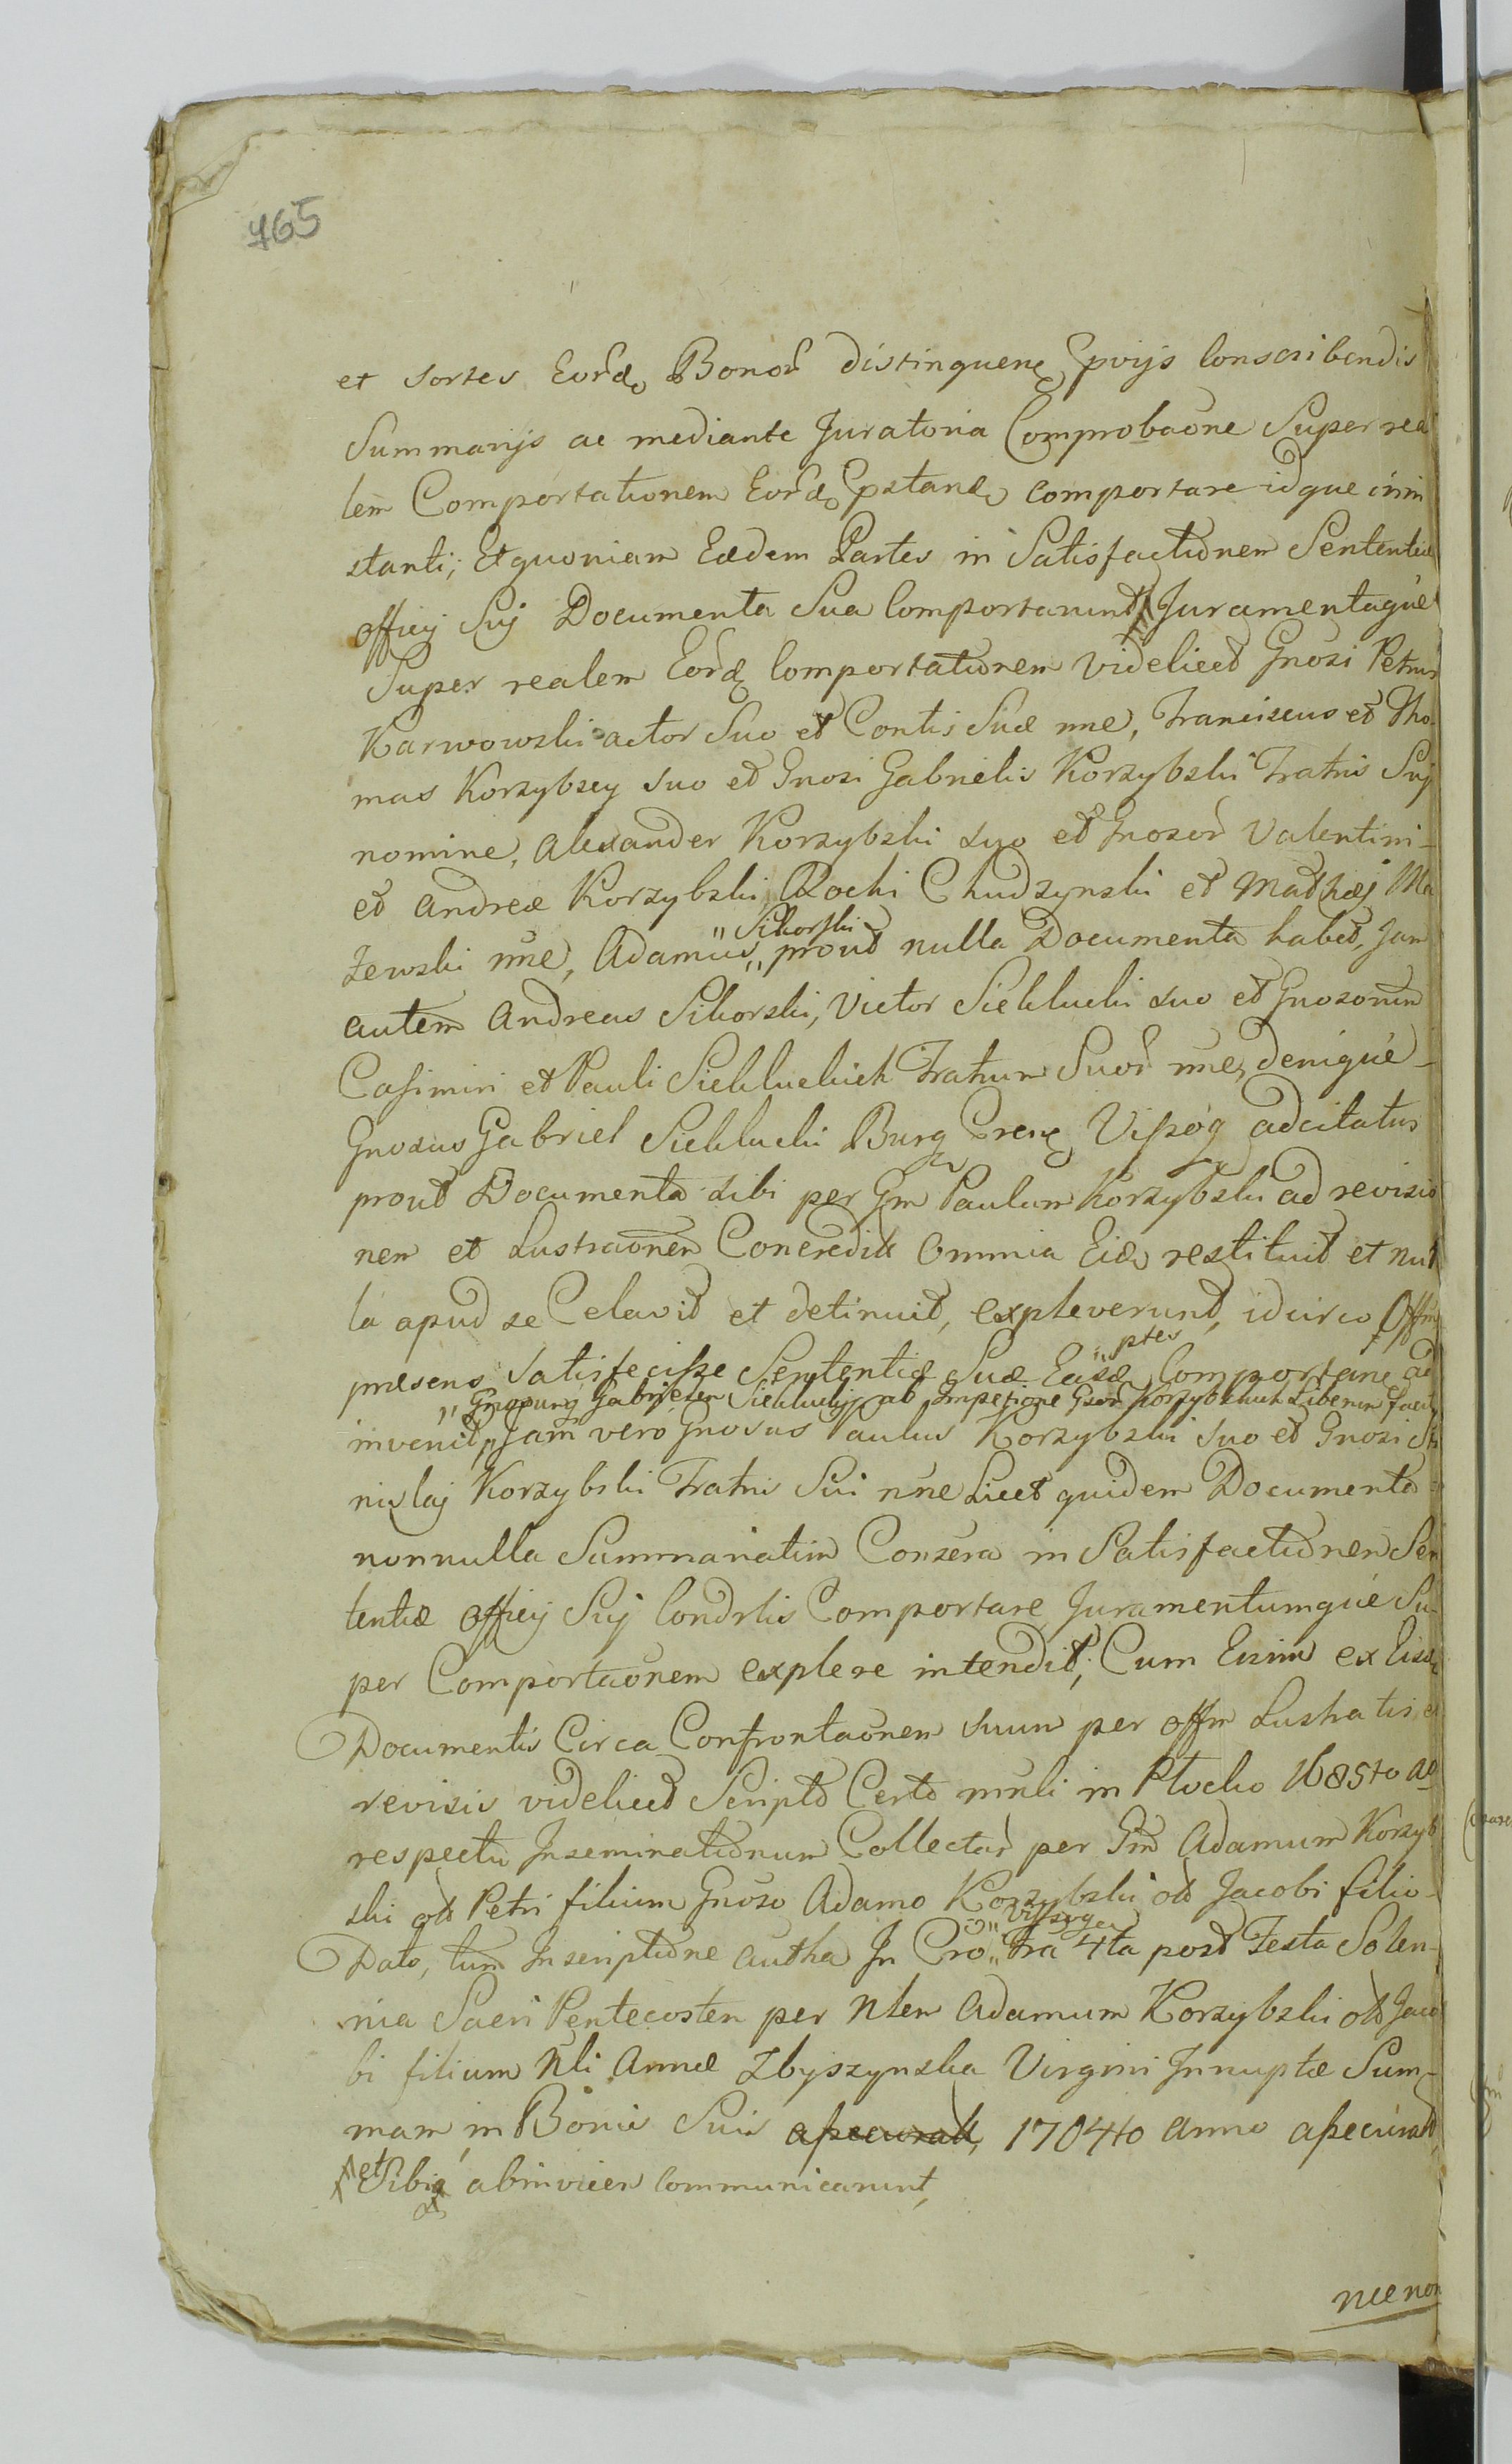 765
et sortes Eord. Bonor distinguen. pvijs Conscribendis
Summarijs ac mediante Juratoria Comprobaone Super rea
lem Comportationem Eord. pstand. comportare idque in in
stanti; Et quoniam Eædem Partes in Satisfactionem Sententiæ
officij Sui Documenta Sua Comportarunt Juramentaque
Super realem Eord. Comportationem videlicet Gnosi Petrus
Karwowski actor Suo et Contis Suæ nne, Franciscus et Tho
mas Korzybscy suo et Gnosi Gabrielis Korzybski Fratris Sui
nomine, Alexander Korzybski suo et Gnosor Valentini
et Andreæ Korzybski, Rochi Chudzynski et Mathæj Ma
"Sikorski
zewski nne, Adamus" prout nulla Documenta habet, Jam
autem Andreas Sikorski, Victor Sieklucki suo et Gnosorum
Casimiri et Pauli Siekluckich Fratrum Suor nne, denique
Gnosus Gabriel Sieklucki Burg. Cren. Vissog. adcitatus
prout Documenta sibi per Gm Paulum Korzybski ad revisio
nem et Lustraonem Concredita omnia Eid. restituit et nul
la apud se Celavit et detinuit, expleverunt, idcirco Offm
"ptes
præsens satisfecisse Sententiæ Suæ Easd. Comportane ad
"Gnosumq Gabrielem Sieklucki ab Impetione Gsor Korzybskich Liberum facit
invenit, "Jam vero Gnosus Paulus Korzybski suo et Gnosi St
nislaj Korzybski Fratris Sui nne Licet quidem Documenta
nonnulla Summariatim Consera in Satisfactionem Sen
tentiæ officij Sui Condrlis Comportare Juramentumque Su
per Comportaonem explere intendit, Cum Enim ex Eisd.
Documentis Circa Confrontaonem suum per offm Lustratis et
revisis videlicet Scripto Certo mnli in Plocko 1685to ao
respectu Inseminationum Collectar per Gm Adamum Korzyb
ski olt Petri filium Gnoso Adamo Korzybski olt Jacobi filio
"Vissogen
Dato, tum Inscriptione autha In Cro" fra 4ta post Festa Solen
nia Sacri Pentecosten per Nlem Adamum Korzybski olt Jaco
bi filium Nli Annæ Zbyszynska Virgini Innuptæ Sum
mam in Bonis Suis assecurat, 17040 anno assecurat,
et Sibi abinvicem Communicarunt,
nec non